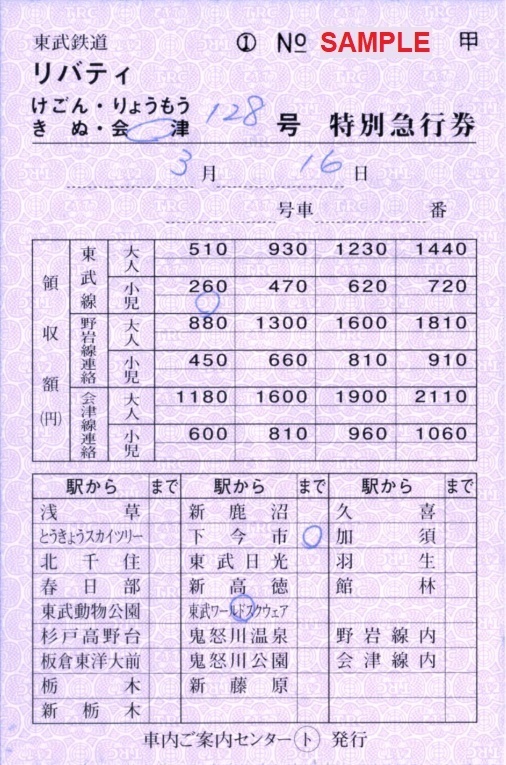 東武鉄道 ① No SAMPLE 甲
リバティ
けごん・りょうもう
きぬ・会津 128 号 特別急行券
3月 16日
号車 番
領収額(円)
東武線 大人 510 930 1230 1440
小児 260 470 620 720
野岩線連絡 大人 880 1300 1600 1810
小児 450 660 810 910
会津線連絡 大人 1180 1600 1900 2110
小児 600 810 960 1060
駅から まで 駅から まで 駅から まで
浅草 新鹿沼 久喜
とうきょうスカイツリー 下今市 加須
北千住 東武日光 羽生
春日部 新高徳 館林
東武動物公園 東武ワールドスクウェア
杉戸高野台 鬼怒川温泉 野岩線内
板倉東洋大前 鬼怒川公園 会津線内
栃木 新藤原
新栃木
車内ご案内センター ト 発行